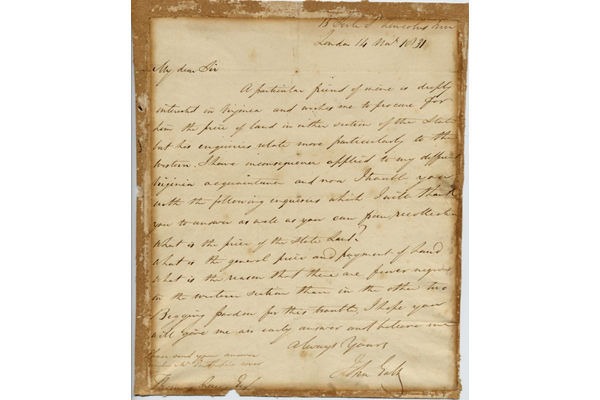 London 14 Nov 1831
My dear Sir
A particular friend of mine is deeply
interested in Virginia and wishes me to procure for
him the price of land in either section of the State
but his enquiries relate more particularly to the
Western. I have in consequence applied to my different
Virginia acquaintance and now I trouble you
with the following enquiries which I will thank
you to answer as well as you can from recollection
What is the price of the State Land?
What is the general price and payment of Land
What is the reason that there are fewer negroes
in the western section than in the other two
Begging pardon for this trouble, I hope you
will give me an early answer and believe me
always Yours
John
send your answer